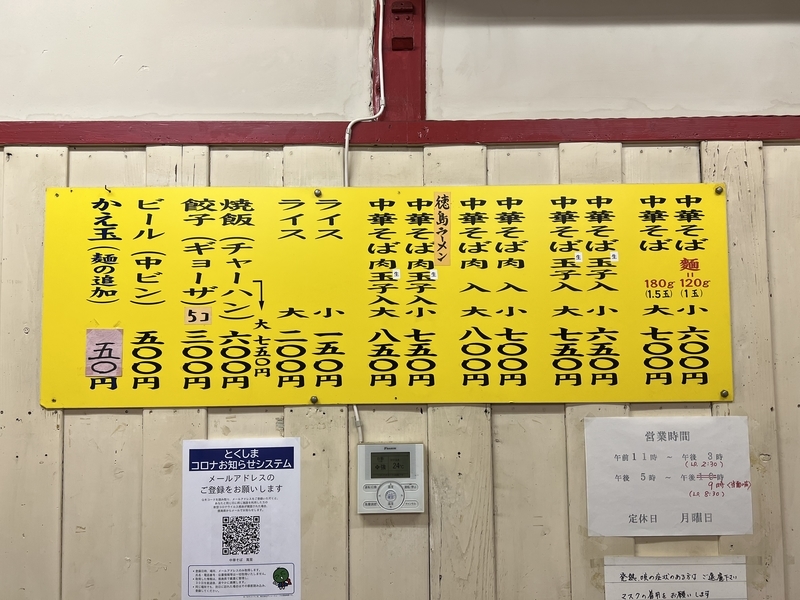 中華そば 麺=120g (1玉) 小 六〇〇円
中華そば 180g (1.5玉) 大 七〇〇円
中華そば生玉子入 小 六五〇円
中華そば生玉子入 大 七五〇円
中華そば肉入 小 七〇〇円
中華そば肉入 大 八〇〇円
徳島ラーメン
中華そば肉生玉子入 小 七五〇円
中華そば肉生玉子入 大 八五〇円
ライス 小 一五〇円
ライス 大 二〇〇円
焼飯(チャーハン) 六〇〇円
大 七五〇円
餃子(ギョーザ) 5コ 三〇〇円
ビール(中ビン) 五〇〇円
かえ玉(麺の追加) 五〇円
とくしま
コロナお知らせシステム
メールアドレスの
ご登録をお願いします
営業時間
午前11時〜午後3時
(L.O 2:30)
午後5時〜午後
9時
(L.O 8:30)
定休日 月曜日
発熱 咳の症状のある方は ご遠慮下さい
マスクの着用をお願いします